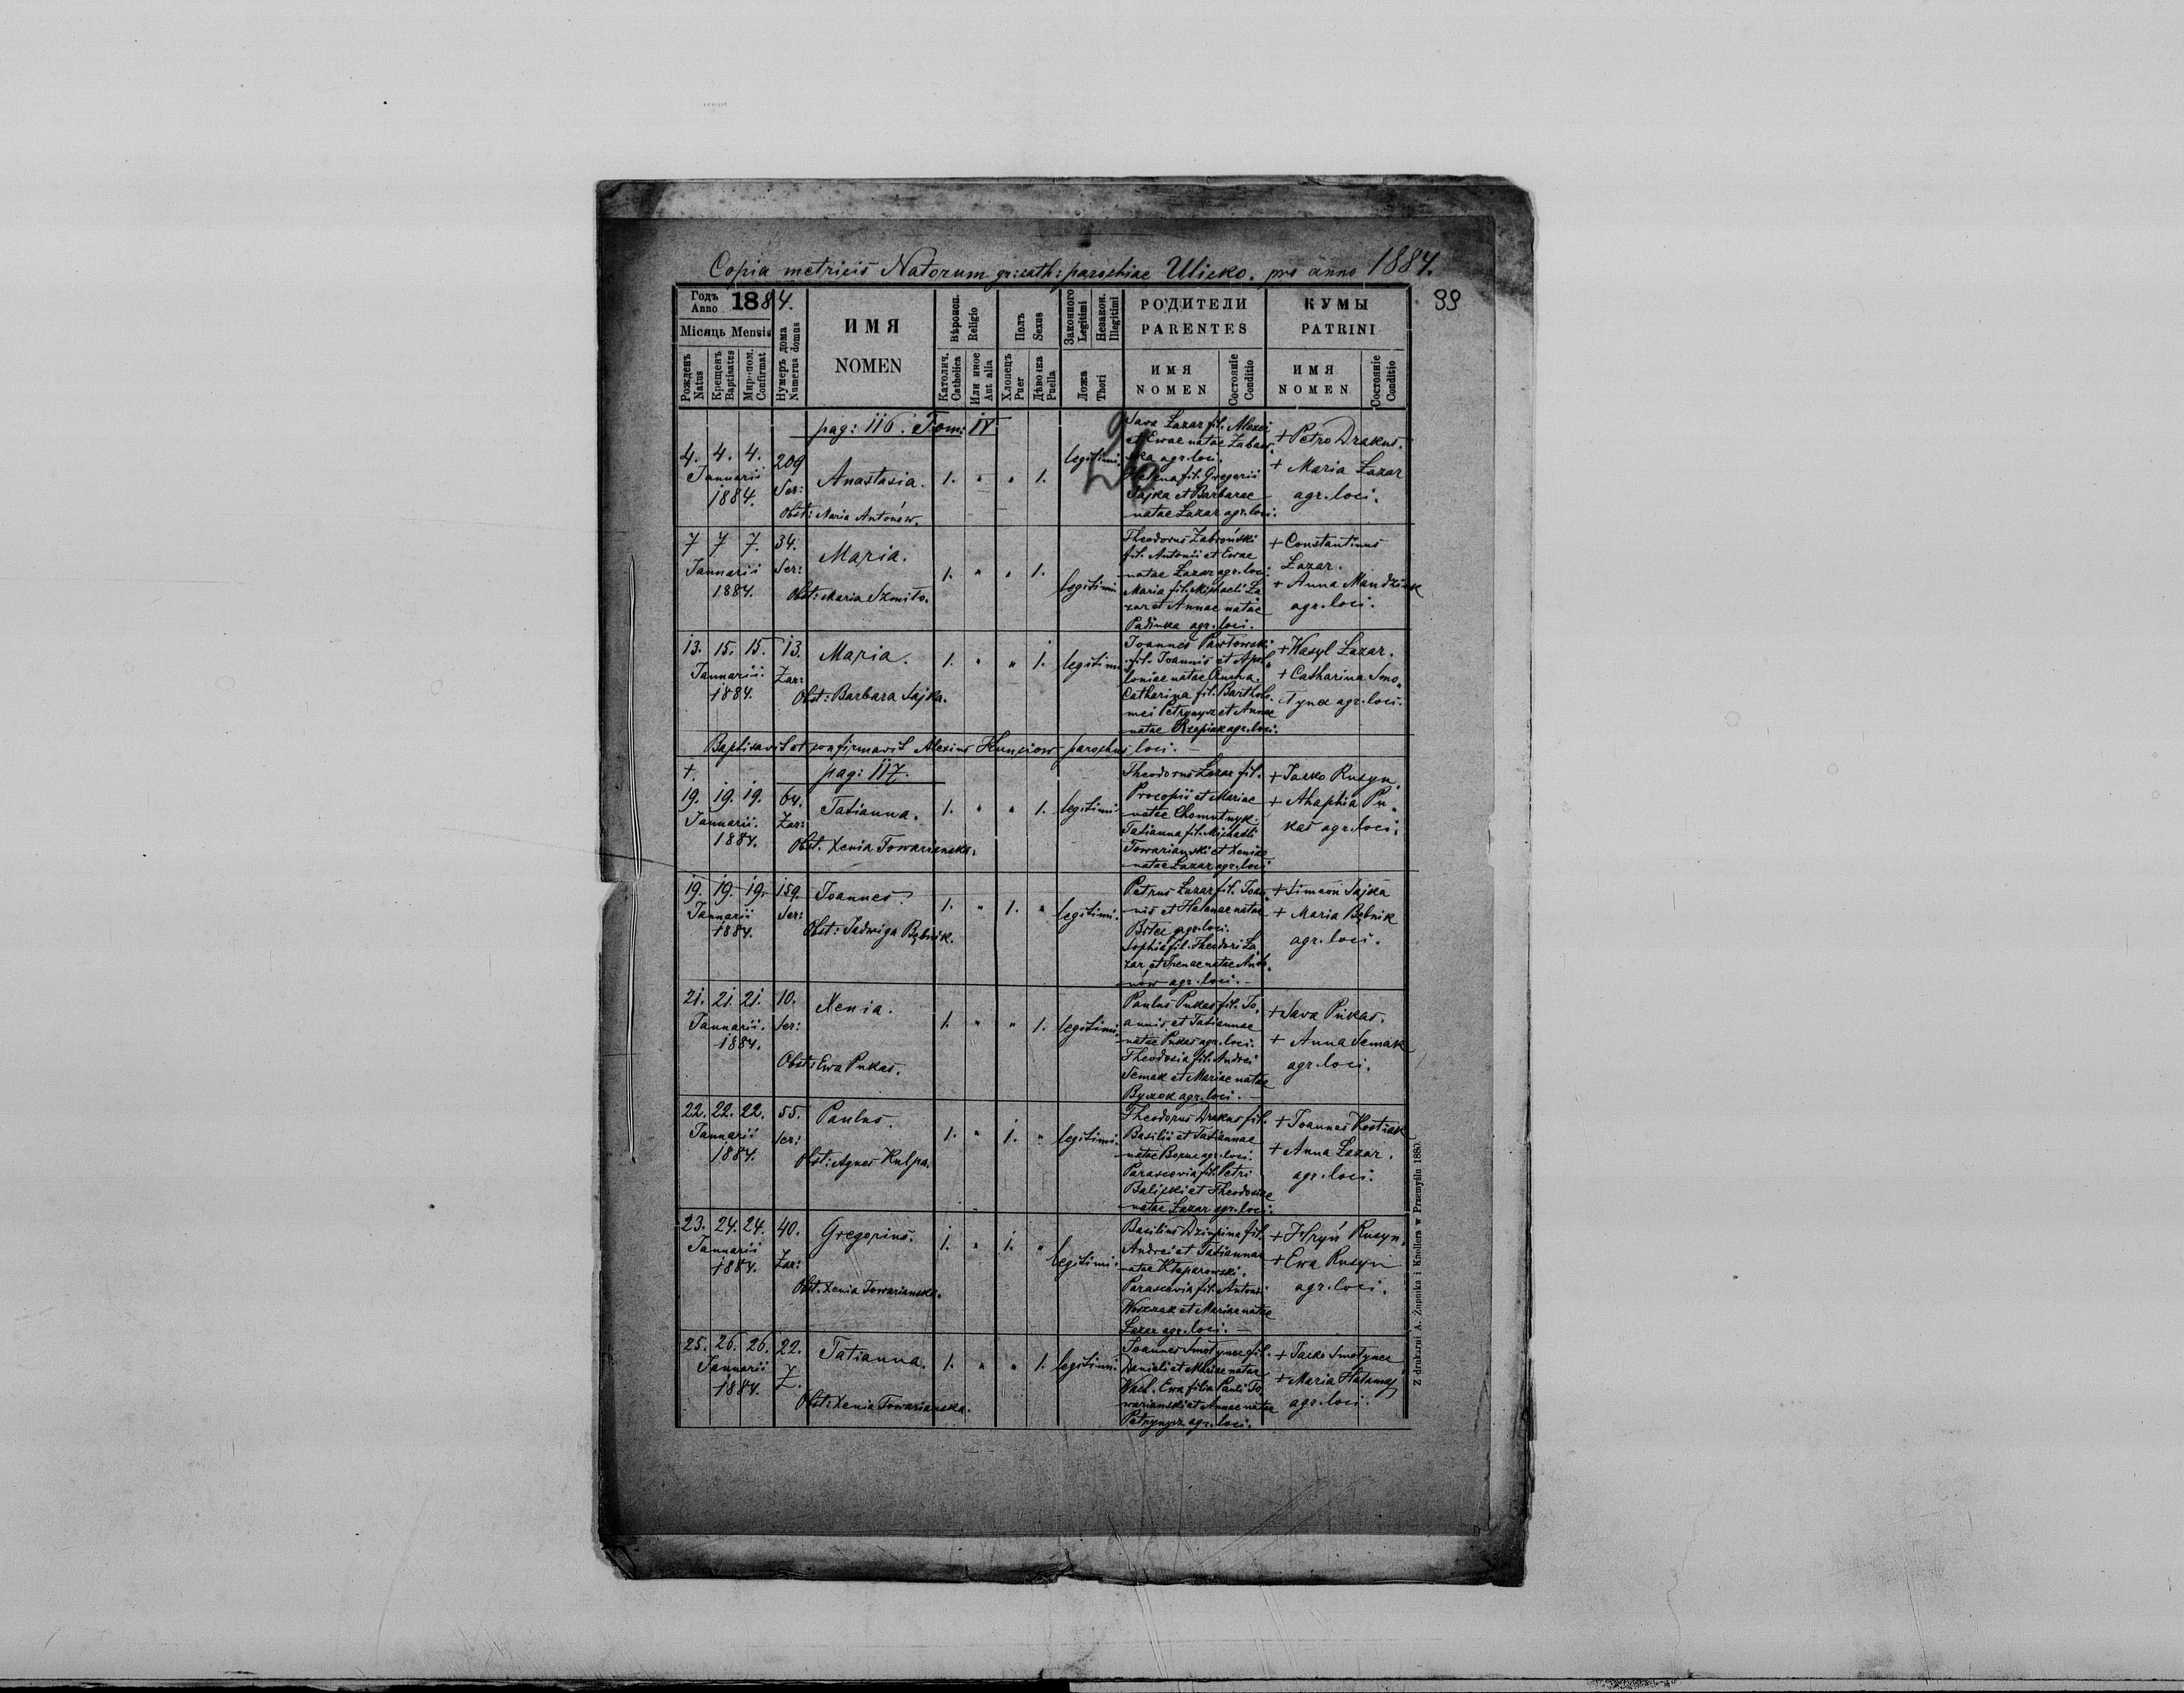 Copia metricis Natorum gr: cath: parochiae Ulicko. pro anno 1884.
99
Годъ Anno 1884.
Місяць Mensis
Рожденъ Natus
Крещенъ Baptisatus
Мѵропом. Confirmat
Нумеръ дома Numerus domus
ИМЯ
NOMEN
Вѣроисп. Religio
Католич. Catholica
Или иное Aut alia
Полъ Sexus
Хлопецъ Puer
Дѣвочка Puella
Законного Legitimi
Незакон. Illegitimi
Ложа Thori
РОДИТЕЛИ
PARENTES
ИМЯ
NOMEN
Состояніе Conditio
КУМЫ
PATRINI
ИМЯ
NOMEN
Состояніе Conditio
pag: 116. Tom: IV
4. 4. 4. Januarii 1884.
209 Ser:
Anastasia.
Obst: Maria Antonów.
1. " " 1.
legitimi
Sava Lazar fil. Alexei
et Ewae natae
agr. loci.
Helena fil. Gregorii
Sajka et Barbarae
natae Lazar agr. loci.
+ Petro Drakus.
+ Maria Lazar
agr. loci.
7 7 7. Januarii 1884.
34. Ser:
Maria.
Obst: Maria
1. " " 1.
legitimi
Theodorus Zabroński
fil. Antonii et Ewae
natae Lazar agr. loci.
Maria fil. Michaeli La
zar et Annae natae
agr. loci.
+ Constantinus
Lazar.
+ Anna Mandziuk
agr. loci.
13. 15. 15. Januarii. 1884.
13. Zar:
Maria.
Obst: Barbara Sajka.
1. " " 1.
legitimi
Joannes Pawłowski
fil. Joannis et Apol
loniae natae
Catharina fil. Bartholo
mei Petrynycz et Annae
natae Rzepiak agr. loci.
+ Wasyl Lazar.
+ Catharina Smo
łynec agr. loci.
Baptisavit et confirmavit Alexius Kunciow parochus loci. —
pag: 117.
+.
19. 19. 19. Januarii. 1884.
64. Zar:
Tatianna.
Obst. Xenia Towarianska.
1. " " 1.
legitimi
Theodorus Lazar fil.
Procopii et Mariae
natae Chomutnyk.
Tatianna fil. Michaeli
Towarianski et Xeniae
natae Lazar agr. loci
+ Jacko Rusyn.
+ Ahaphia Pu
kas agr. loci.
19. 19. 19. Januarii 1884.
159. Ser:
Joannes.
Obst: Jadwiga Bębnik.
1. " 1. "
legitimi.
Petrus Lazar fil. Joan
nis et Helenae natae
agr. loci.
Sophia fil. Theodori La
zar et Irenae natae Anto
nów agr. loci. —
+ Simeon Sajka
+ Maria Bębnik
agr. loci.
21. 21. 21. Januarii. 1884.
10. Ser:
Xenia.
Obst: Ewa Pukas.
1. " " 1.
legitimi.
Paulus Pukas fil. Jo
annis et Tatiannae
natae Pukas agr. loci.
Theodosia fil. Andrei
Semak et Mariae natae
agr. loci. —
+ Sava Pukas.
+ Anna Semak
agr. loci.
22. 22. 22. Januarii 1884.
55. Ser:
Paulus.
Obst: Agnes Kulpa.
1. " 1. "
legitimi.
Theodorus Drakus fil.
Basilii et Tatiannae
natae agr. loci.
Parascevia fil. Petri
Balicki et Theodosiae
natae Lazar agr. loci.
+ Joannes Kostiak
+ Anna Lazar.
agr. loci.
23. 24. 24. Januarii 1884.
40. Zar:
Gregorius.
Obst. Xenia Towarianska.
1. " 1. "
legitimi.
Basilius fil.
Andrei et Tatiannae
natae Kłeparowski.
Parascevia fil. Antoni
et Mariae natae
Lazar agr. loci. —
+ Hryń Rusyn.
+ Ewa Rusyn
agr. loci.
25. 26. 26. Januarii 1884.
22. Z.
Tatianna.
Obst: Xenia Towarianska.
1. " " 1.
legitimi.
Joannes Smołynec fil.
Danieli et Mariae natae
Ewa filia Pauli To
warianski et Annae natae
Petrynycz agr. loci.
+ Jacko Smołynec
+ Maria Hałamaj
agr. loci.
Z drukarni A. Żupnika i Knollera w Przemyślu 1883.